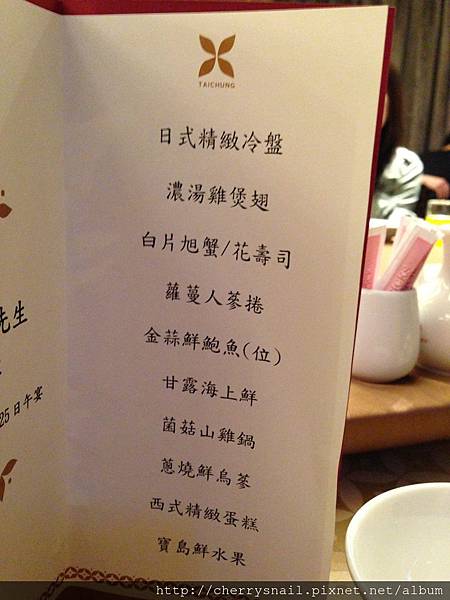 TAICHUNG
日式精緻冷盤
濃湯雞煲翅
白片旭蟹/花壽司
蘿蔓人蔘捲
金蒜鮮鮑魚(位)
甘露海上鮮
菌菇山雞鍋
蔥燒鮮烏蔘
西式精緻蛋糕
寶島鮮水果
先生
25日午宴
http://cherrysnail.pixnet.net/album